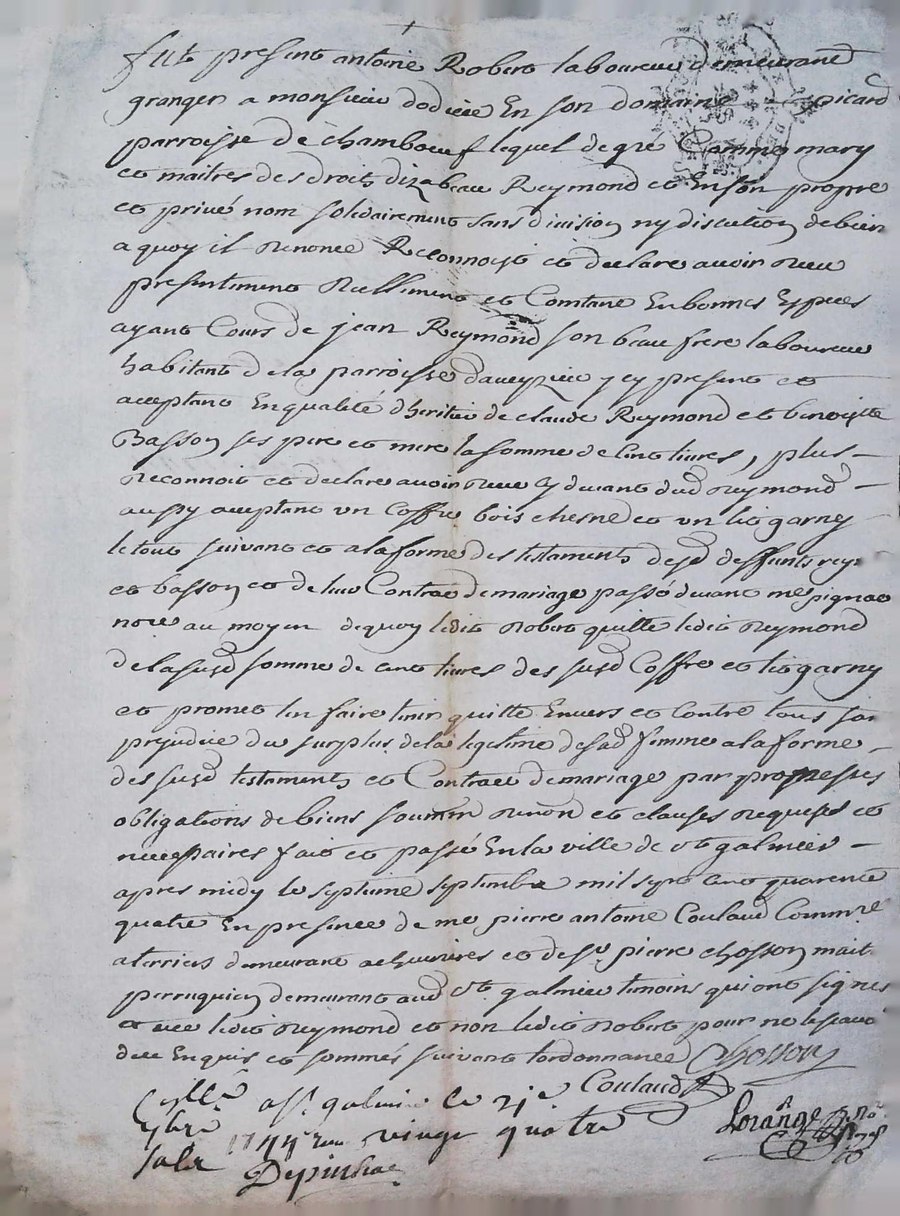 fut present antoine Robert laboureur demeurant
granger a monsieur dodieu En son domaine picard
parroisse de chambœuf lequel de gré Comme mary
et maitres des droits dizabeau Reymond et En son propre
et privé nom solidairement sans division ny discution de bien
a quoy il renonce Reconnoist et declare avoir receu
presentement reellement et Comtant En bonnes Especes
ayant Cours de jean Reymond son beau frere laboureur
habitant de la parroisse daveyzieu y cy present et
aceptant En qualité dheritier de claude Reymond et benoiste
Basson ses pere et mere la somme de Cinq livres, plus
reconnoit et declare avoir receu cy devant dud reymond
aussy aceptant un Coffre bois chesne et un lit garny
le tout suivant et a la forme des testaments desd deffunts reym
et basson et de leur Contract de mariage passé devant me pignac
nore au moyen de quoy ledit robert quitte ledit reymond
de la susd somme de cinq livres des susd Coffre et lit garny
et promet len faire tenir quitte Envers et Contre tous san
prejudice du surplus de la legitime de sad femme a la forme
des susd testaments et Contract de mariage par promesses
obligations de biens soumon renon et clauses requises et
necessaires fait et passé En la ville de st galmier
apres midy le septieme septembre mil sept cent quarente
quatre En presence de me pierre antoine Coulaud Commre
a terriers demeurant a chevrieres et de sr pierre chosson mait
perruquier demeurant aud st galmier temoins qui ont signes
avec ledit reymond et non ledit robert pour ne le scavoir
de ce Enquis et sommés suivant lordonnance Chosson
Coulaud
Lorange
Cellé a st galmier le 21e
7bre 1744 reu vingt quatre
sols Depinhac